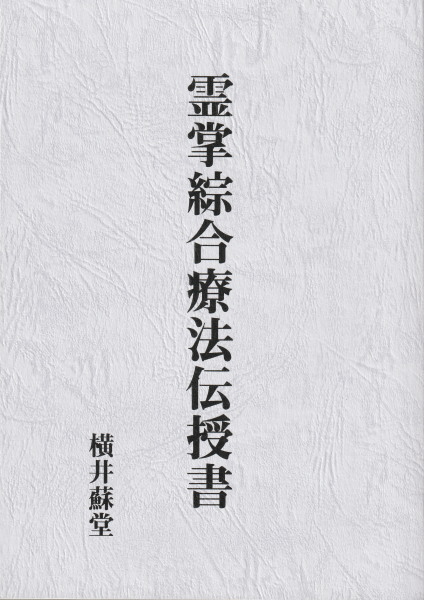 霊掌綜合療法伝授書
横井蘇堂